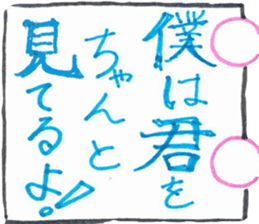 僕は君を
ちゃんと
見てるよ!